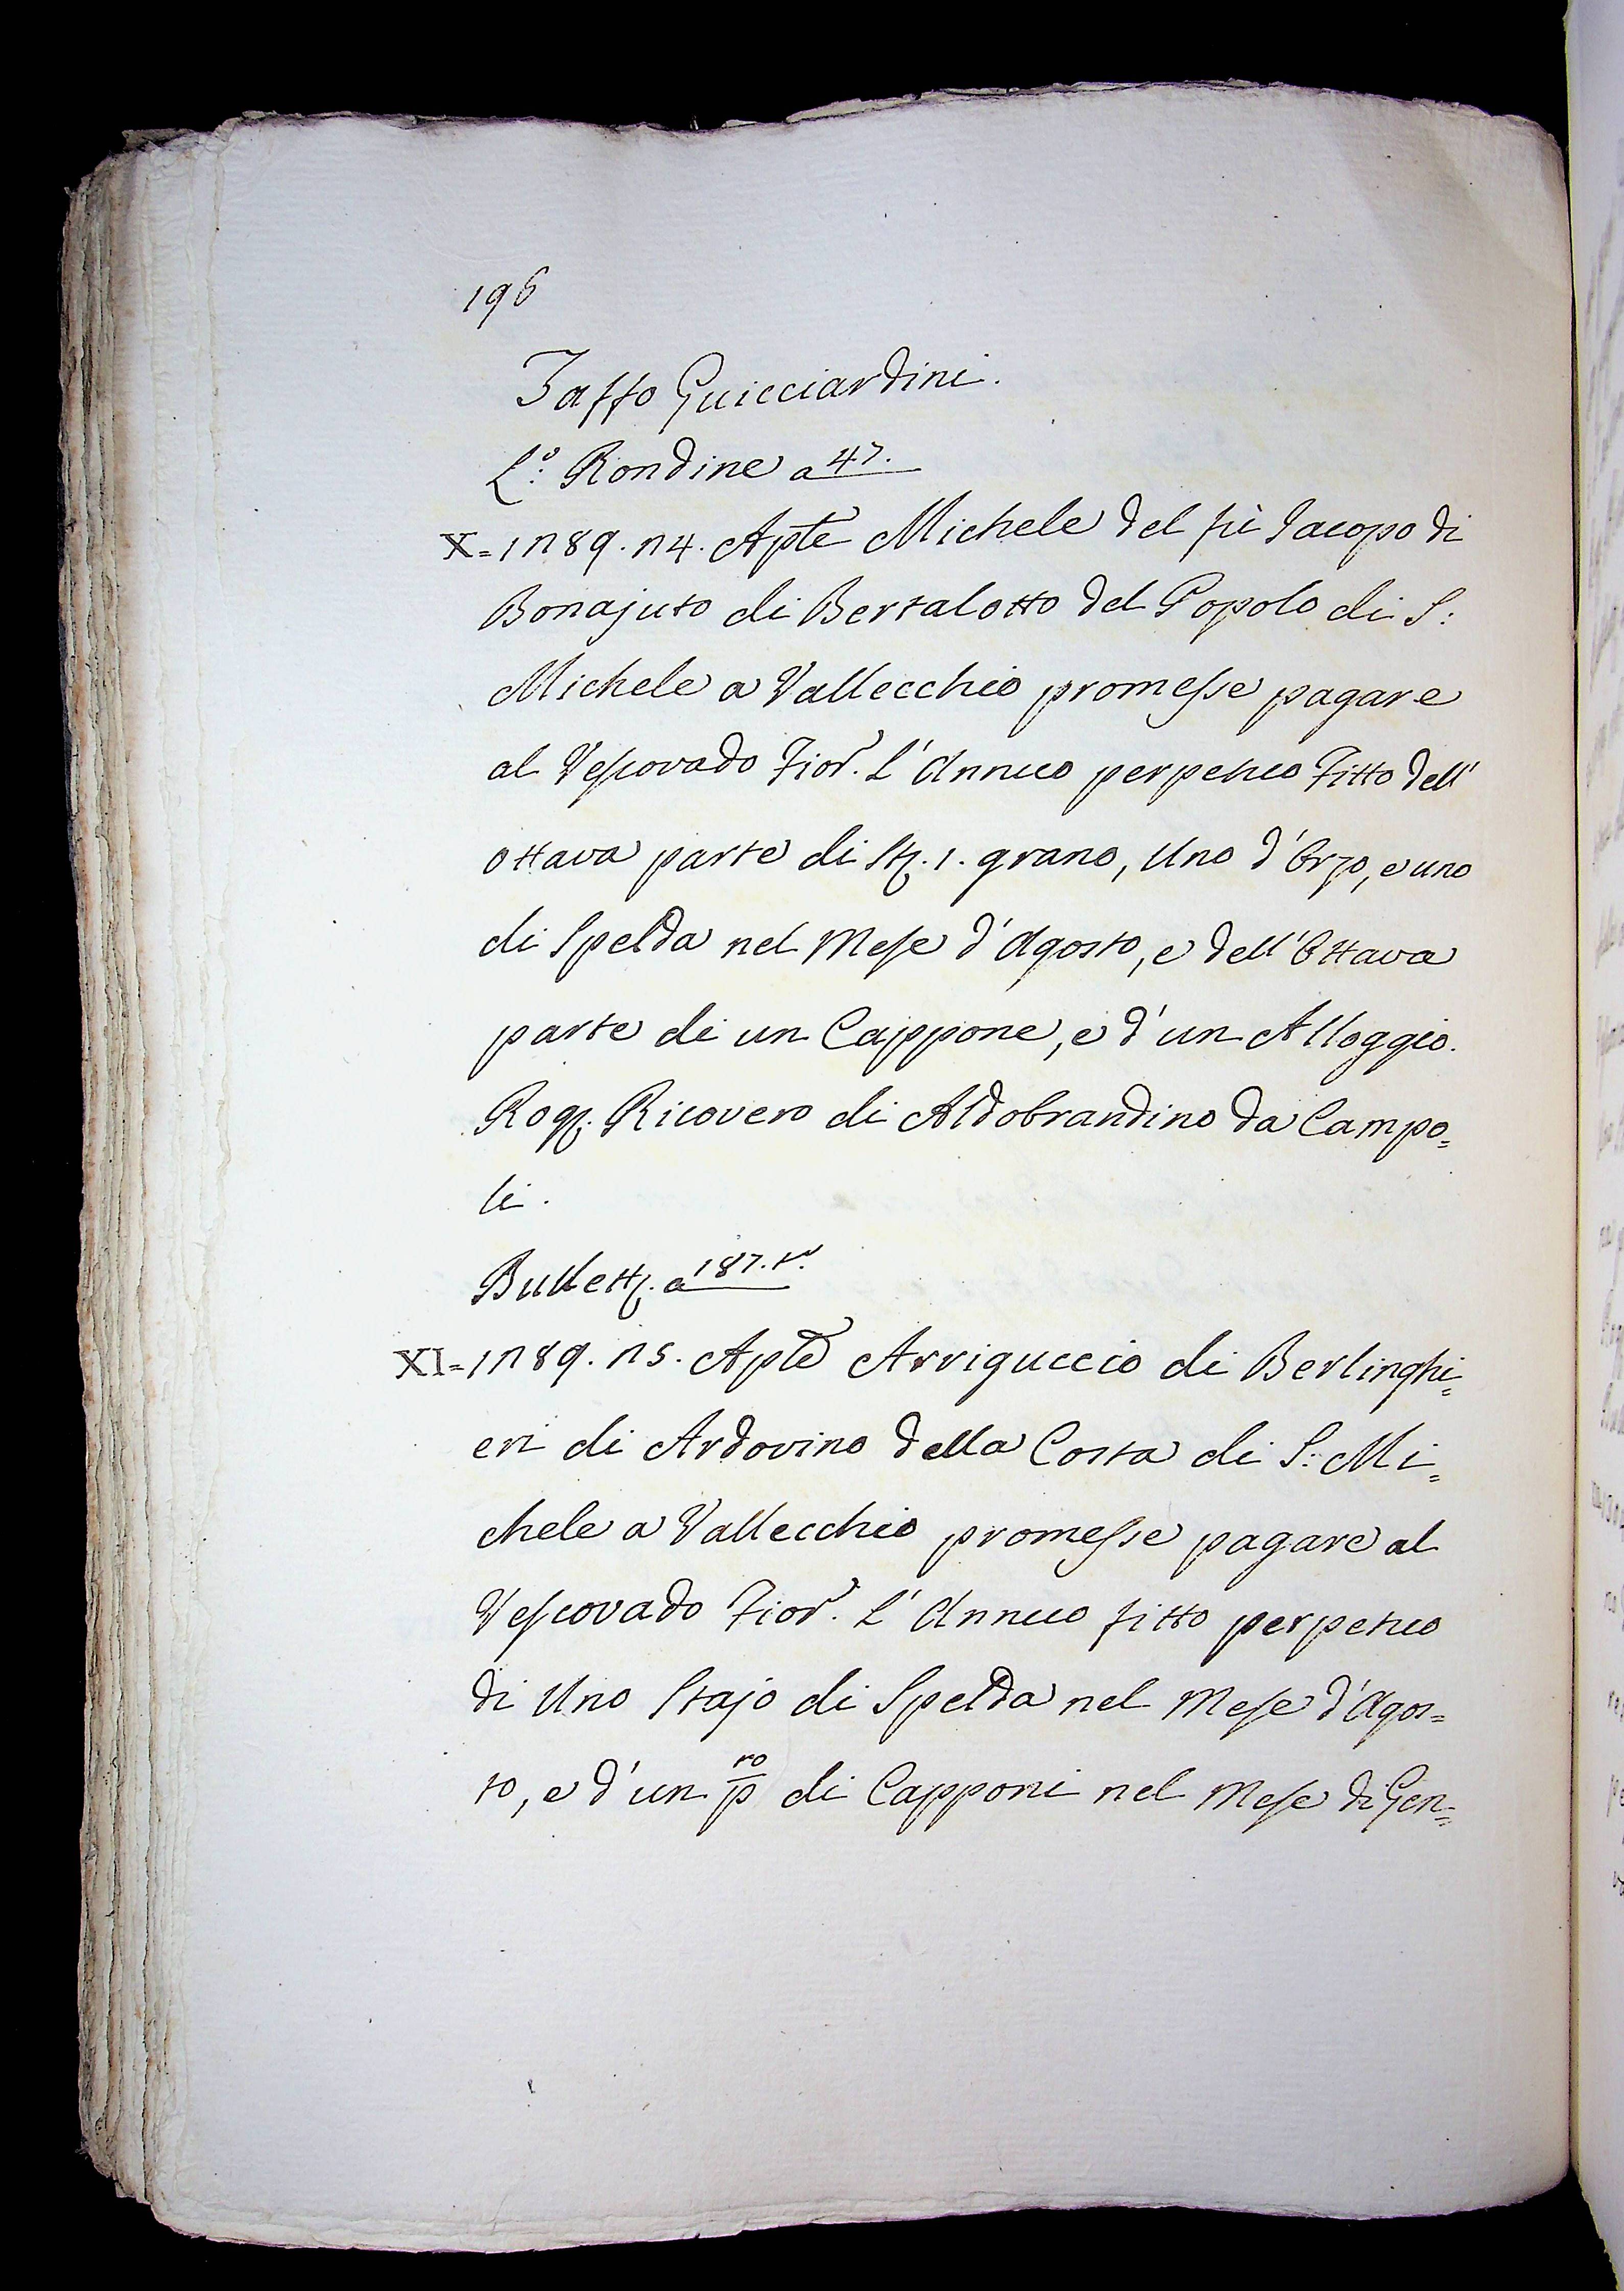 196
Zasso Guicciardini.
L.º Rondine a 47.
X = 1289. 24. Aple Michele del fù Jacopo di
Bonajuto di Bertalotto del Popolo di S:
Michele a Vallecchio promesse pagare
al Vescovado Fior. L'Annuo perpetuo Fitto dell'
ottava parte di St. 1. grano, Uno d'Orzo, e uno
di Spelda nel Mese d'Agosto, e dell'Ottava
parte di un Cappone, e d'un Alloggio.
Rog. Ricovero di Aldobrandino da Campo=
li.
Bullett. a 187. to
XI = 1289. 25. Aple Arriguccio di Berlinghi=
eri di Ardovino della Costa di S: Mi=
chele a Vallecchio promesse pagare al
Vescovado Fior. L'Annuo fitto perpetuo
di Uno Stajo di Spelda nel Mese d'Agos=
to, e d'un pro di Capponi nel Mese di Gen=